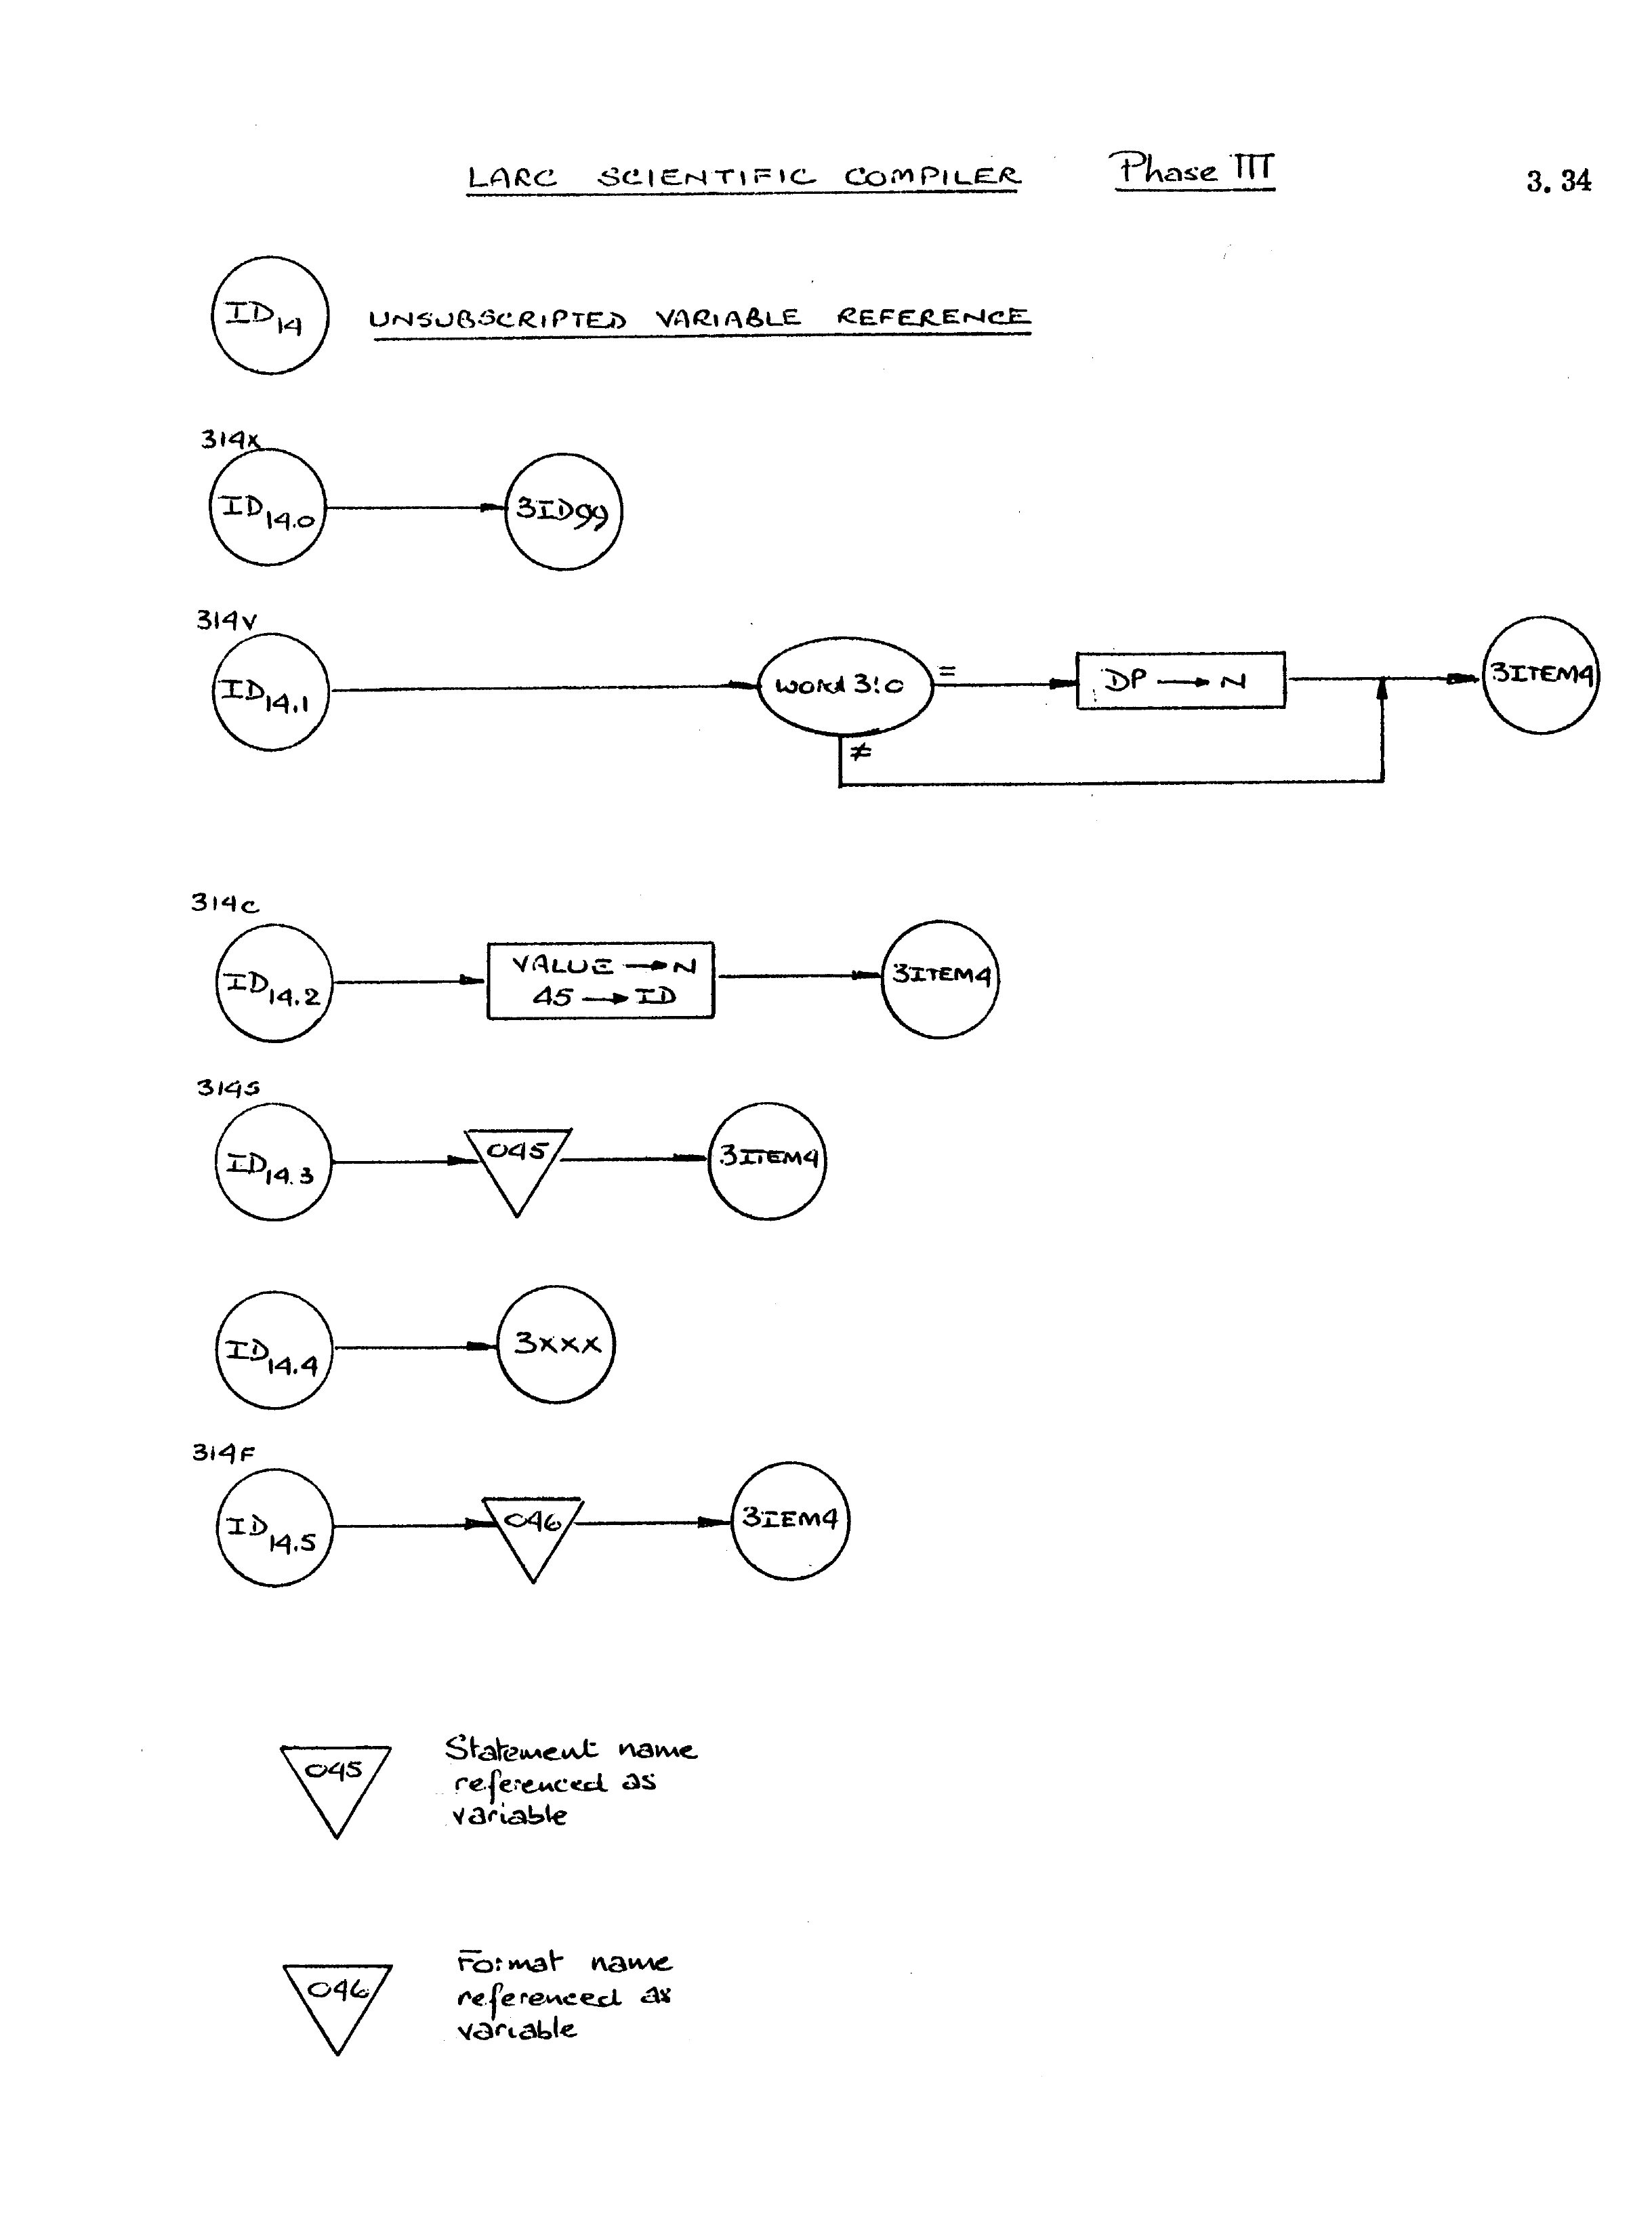 LARC SCIENTIFIC COMPILER Phase III 3.34
ID14 UNSUBSCRIPTED VARIABLE REFERENCE
314X
ID14.0 3ID99
314V
ID14.1 word 3:0 = DP → N 3ITEM4
≠
314C
ID14.2 VALUE → N 3ITEM4
45 → ID
314S
ID14.3 045 3ITEM4
ID14.4 3XXX
314F
ID14.5 046 3IEM4
045 Statement name
referenced as
variable
046 Format name
referenced as
variable